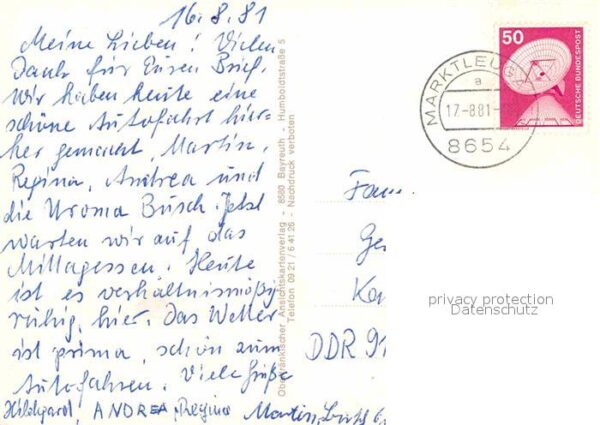 16.8.81
Meine Lieben! Vielen
Dank für Euren Brief.
Wir haben heute eine
schöne Autofahrt hier-
her gemacht, Martin,
Regina, Andrea und
die Uroma Busch. Jetzt
warten wir auf das
Mittagessen. Heute
ist es verhältnismäßig
ruhig, hier. Das Wetter
ist prima, schön zum
Autofahren. Viele Grüße
Hildegard, ANDREA, Regina Martin,
Oberfränkischer Ansichtskartenverlag - 8580 Bayreuth - Humboldtstraße 5
Telefon 09 21 / 6 41 26 - Nachdruck verboten
50
DEUTSCHE BUNDESPOST
MARKTLEUG
a
17.-8.81-
8654
Fam.
Ge
Ka
DDR 91
privacy protection
Datenschutz